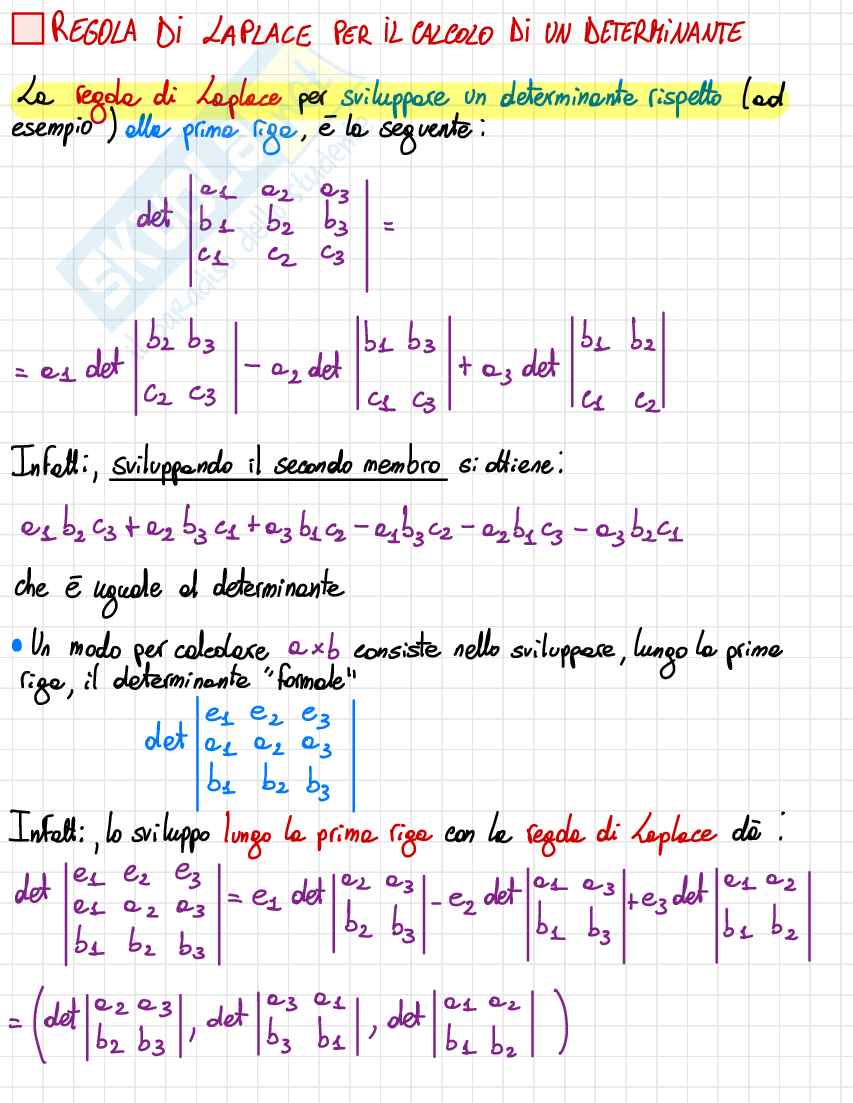 REGOLA Di LAPLACE PER iL CALCOLO Di UN DETERMINANTE
La regola di Laplace per sviluppare un determinante rispetto (ad
esempio) alla prima riga, è la seguente:
det | a1 a2 a3 |
| b1 b2 b3 | =
| c1 c2 c3 |
= a1 det | b2 b3 | - a2 det | b1 b3 | + a3 det | b1 b2 |
| c2 c3 | | c1 c3 | | c1 c2 |
Infatti, sviluppando il secondo membro si ottiene:
a1 b2 c3 + a2 b3 c1 + a3 b1 c2 - a1 b3 c2 - a2 b1 c3 - a3 b2 c1
che è uguale al determinante
• Un modo per calcolare a×b consiste nello sviluppare, lungo la prima
riga, il determinante "formale"
det | e1 e2 e3 |
| a1 a2 a3 |
| b1 b2 b3 |
Infatti, lo sviluppo lungo la prima riga con la regola di Laplace dà:
det | e1 e2 e3 | = e1 det | a2 a3 | - e2 det | a1 a3 | + e3 det | a1 a2 |
| a1 a2 a3 | | b2 b3 | | b1 b3 | | b1 b2 |
| b1 b2 b3 |
= ( det | a2 a3 |, det | a3 a1 |, det | a1 a2 | )
| b2 b3 | | b3 b1 | | b1 b2 |